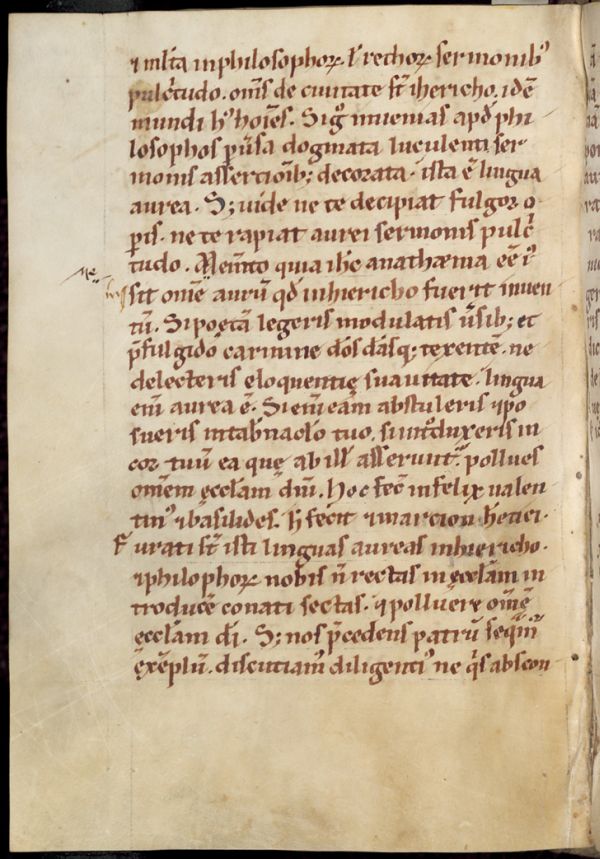 ⁊ ml̄ta in philosophoꝝ. ł rethoꝝ. sermonibꝰ
pulc̄tudo. om̄s de ciuitate st̄ ihericho. idē
mundi hꝰ hoīes. Si gͦ inuenias apđ phi
losophos ꝑūsa dogmata luculenti ser
monis assertionīb; decorata. ista ē lingua
aurea. S; uide ne te decipiat fulgor o
ꝑis. ne te rapiat aurei sermonis pulc̄
tudo. Mem̄to quia ih̄c anathæma eē iꝰ
sit omē aurū qđ in hiericho fuerit inuen
tū. Si poetā legeris modulatis ūsib; et
p̄fulgido carmine dōs dāsq; texentē. ne
delecteris eloquentię suauitate. lingua
eīn aurea ē. Si eīn eām abstuleris ⁊ po
sueris in tab̄naclo tuo. si int̊duxeris in
cor tuū ea quę ab ill̄ asserunt᷑. pollues
omnem ęccl̄am dn̄i. Hoc fec̄ infelix ualen
tinꝰ ⁊ basilides. h̄ fecit ⁊ marcion h̄etici.
Furati st̄ isti linguas aureas in hiericho.
⁊ philophoꝝ nobis n̄ rectas in ęccl̄am in
troducē conati sectas. ⁊ polluere om̄ē
ęccl̄am dī. S; nos p̄cedens patrū seq̄m᷑
exēplū. discutiam᷑ diligentiꝰ ne q̄s abscon